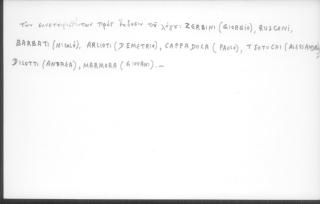 των συνεισφερόντων πρὸς ἔκδοσιν τοῦ λόγου: ZERBINI (GIORGIO), RUSCONI,
BARBATI (NICOLÒ), ARLIOTI (DEMETRIO), CAPPADOCA (PAOLO), TSOTUCHI (ALESSANDRO)
DILOTTI (ANDREA), MARMORA (GIOVANI).—